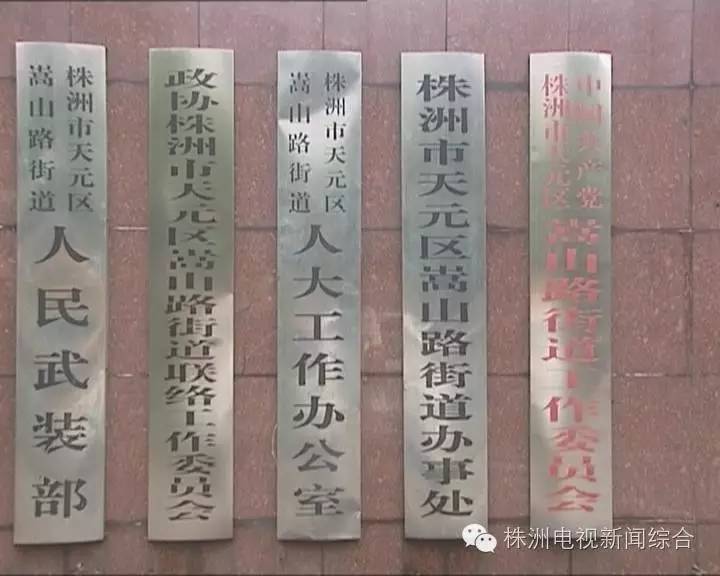 株洲市天元区
嵩山路街道
人民武装部
政协株洲市天元区嵩山路街道联络工作委员会
株洲市天元区
嵩山路街道
人大工作办公室
株洲市天元区嵩山路街道办事处
中国共产党
株洲市天元区
嵩山路街道工作委员会
株洲电视新闻综合